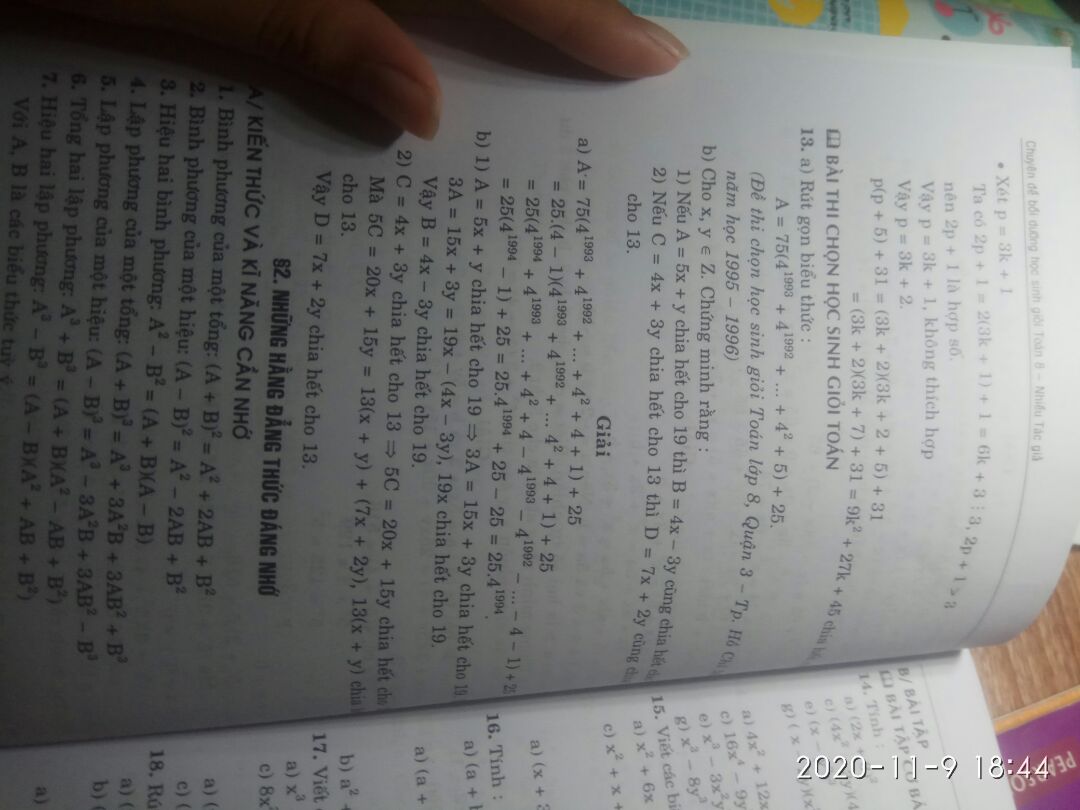 Chuyên đề bồi dưỡng học sinh giỏi Toán 8 – Nhiều Tác giả
• Xét p = 3k + 1
Ta có 2p + 1 = 2(3k + 1) + 1 = 6k + 3 ⋮ 3, 2p + 1 > 3
nên 2p + 1 là hợp số.
Vậy p = 3k + 1, không thích hợp
Vậy p = 3k + 2.
p(p + 5) + 31 = (3k + 2)(3k + 2 + 5) + 31
= (3k + 2)(3k + 7) + 31 = 9k² + 27k + 45 chia hết
BÀI THI CHỌN HỌC SINH GIỎI TOÁN
13. a) Rút gọn biểu thức :
A = 75(4¹⁹⁹³ + 4¹⁹⁹² + ... + 4² + 5) + 25.
(Đề thi chọn học sinh giỏi Toán lớp 8, Quận 3 – Tp. Hồ Chí
năm học 1995 – 1996)
b) Cho x, y ∈ Z. Chứng minh rằng :
1) Nếu A = 5x + y chia hết cho 19 thì B = 4x – 3y cũng chia hết
2) Nếu C = 4x + 3y chia hết cho 13 thì D = 7x + 2y cũng
cho 13.
Giải
a) A = 75(4¹⁹⁹³ + 4¹⁹⁹² + ... + 4² + 4 + 1) + 25
= 25.(4 – 1)(4¹⁹⁹³ + 4¹⁹⁹² + ... 4² + 4 + 1) + 25
= 25(4¹⁹⁹⁴ + 4¹⁹⁹³ + ... + 4² + 4 – 4¹⁹⁹³ – 4¹⁹⁹² – ... – 4 – 1) + 25
= 25(4¹⁹⁹⁴ – 1) + 25 = 25.4¹⁹⁹⁴ + 25 – 25 = 25.4¹⁹⁹⁴.
b) 1) A = 5x + y chia hết cho 19 ⇒ 3A = 15x + 3y chia hết cho 19
3A = 15x + 3y = 19x – (4x – 3y), 19x chia hết cho 19.
Vậy B = 4x – 3y chia hết cho 19.
2) C = 4x + 3y chia hết cho 13 ⇒ 5C = 20x + 15y chia hết cho
Mà 5C = 20x + 15y = 13(x + y) + (7x + 2y), 13(x + y) chia
cho 13.
Vậy D = 7x + 2y chia hết cho 13.
§2. NHỮNG HẰNG ĐẲNG THỨC ĐÁNG NHỚ
A/ KIẾN THỨC VÀ KĨ NĂNG CẦN NHỚ
1. Bình phương của một tổng: (A + B)² = A² + 2AB + B²
2. Bình phương của một hiệu: (A – B)² = A² – 2AB + B²
3. Hiệu hai bình phương: A² – B² = (A + B)(A – B)
4. Lập phương của một tổng: (A + B)³ = A³ + 3A²B + 3AB² + B³
5. Lập phương của một hiệu: (A – B)³ = A³ – 3A²B + 3AB² – B³
6. Tổng hai lập phương: A³ + B³ = (A + B)(A² – AB + B²)
7. Hiệu hai lập phương: A³ – B³ = (A – B)(A² + AB + B²)
Với A, B là các biểu thức tuỳ ý.
B/ BÀI TẬP
BÀI TẬP
14. Tính :
a) (2x +
c) (4x²
e) (x –
g) ( x
15. Viết các
a) 4x² + 12x
c) 16x⁴ – 9y
e) x³ – 3x²y
g) x³ – 8y³
a) x² + 6x
c) x² + x +
16. Tính :
a) (x +
a) (a +
a) (a +
17. Viết
b) a² +
a) x³
c) 8x³
18. Rú
a) (
c) (
a) (
b) (
a)
PEARSO
2020-11-9 18:44